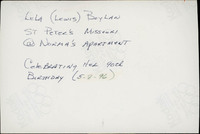 Lela (Lewis) Boylan
St Peter's Missouri
@ Norma's Apartment
Celebrating Her 90th
Birthday (5-8-96)